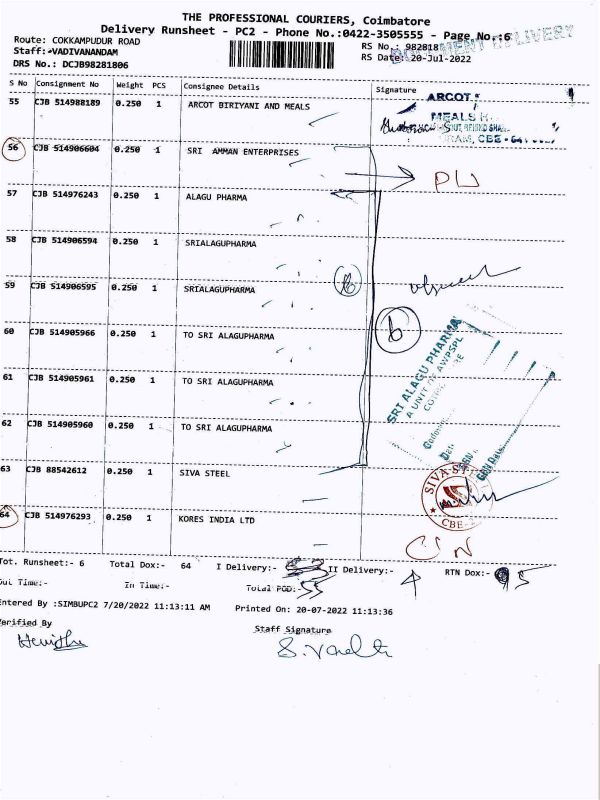 THE PROFESSIONAL COURIERS, Coimbatore
Delivery Runsheet - PC2 - Phone No.:0422-3505555 - Page No.:6
DOCUMENT DELIVERY
Route: COKKAMPUDUR ROAD
RS No.: 982818
Staff:-VADIVANANDAM
RS Date: 20-Jul-2022
DRS No.: DCJB98281806
S No Consignment No Weight PCS Consignee Details Signature
55 CJB 514988189 0.250 1 ARCOT BIRIYANI AND MEALS
ARCOT
MEALS
CBE - 641
56 CJB 514906604 0.250 1 SRI AMMAN ENTERPRISES
57 CJB 514976243 0.250 1 ALAGU PHARMA
58 CJB 514906594 0.250 1 SRIALAGUPHARMA
59 CJB 514906595 0.250 1 SRIALAGUPHARMA
6
60 CJB 514905966 0.250 1 TO SRI ALAGUPHARMA
SRI ALAGU PHARMA
A UNIT OF AWPSPL
61 CJB 514905961 0.250 1 TO SRI ALAGUPHARMA
62 CJB 514905960 0.250 1 TO SRI ALAGUPHARMA
63 CJB 88542612 0.250 1 SIVA STEEL
SIVA STEEL
CBE
64 CJB 514976293 0.250 1 KORES INDIA LTD
Tot. Runsheet:- 6 Total Dox:- 64 I Delivery:- II Delivery:- RTN Dox:- 5
Out Time:- In Time:- Total POD:- 55
Entered By :SIMBUPC2 7/20/2022 11:13:11 AM Printed On: 20-07-2022 11:13:36
Verified By
Staff Signature